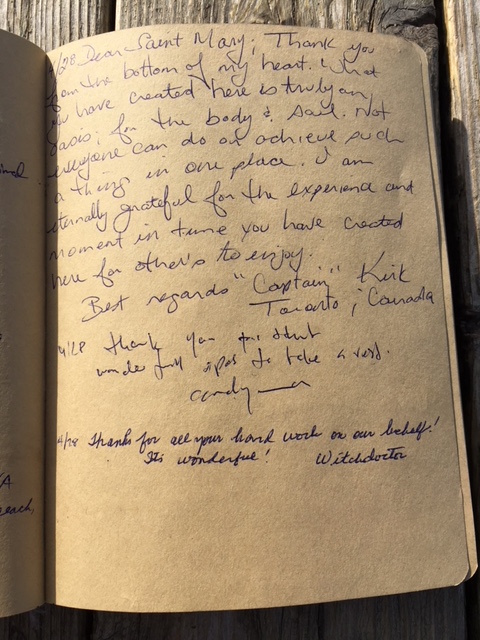 4/28 Dear Saint Mary; Thank you
from the bottom of my heart. What
you have created here is truly an
oasis; for the body & soul. Not
everyone can do or achieve such
a thing in one place. I am
eternally grateful for the experience and
moment in time you have created
here for other's to enjoy.
Best regards "Captain" Kirk
Toronto, Canada
4/28 thank you for that
wonderfull spot to take a rest.
candy
4/28 Thanks for all your hard work on our behalf!
Its wonderful! Witchdoctor
each,